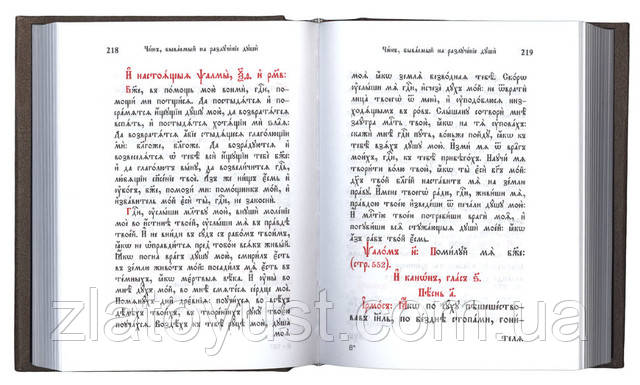 218 Чи́нъ, быва́емый на разлуче́нїе дꙋшѝ
И҆ настоѧ́щыѧ ѱалмы̀, ѯ҃ѳ. и҆ рм҃в:
Бж҃е, въ по́мощь мою̀ вонмѝ, гдⷭ҇и, по-
мощи́ ми потщи́сѧ. Да постыдѧ́тсѧ и҆ по-
сра́мѧтсѧ и҆́щꙋщїи дꙋ́шꙋ мою̀, да возвратѧ́тсѧ
вспѧ́ть и҆ постыдѧ́тсѧ хотѧ́щїи мѝ
ѕла̑ѧ. Да возвратѧ́тсѧ а҆́бїе стыдѧ́щесѧ глаго́лющїи
мѝ: бла́гоже, бла́гоже. Да возра́дꙋютсѧ и҆
возвеселѧ́тсѧ ѡ҆ тебѣ̀ всѝ и҆́щꙋщїи тебѐ бж҃е:
и҆ да глаго́лютъ вы́нꙋ, да возвели́читсѧ гдⷭ҇ь,
лю́бѧщїи спⷭ҇нїе твоѐ. А҆́зъ же ни́щъ є҆́смь и҆
ᲂу҆бо́гъ, бж҃е, помозѝ мѝ: помо́щникъ мо́й и҆
и҆зба́витель мо́й є҆сѝ ты̀, гдⷭ҇и, не закоснѝ.
Гдⷭ҇и, ᲂу҆слы́ши мл҃твꙋ мою̀, внꙋшѝ моле́нїе
моѐ во и҆́стинѣ твое́й, ᲂу҆слы́ши мѧ̀ въ пра́вдѣ
твое́й. И҆ не вни́ди въ сꙋ́дъ съ рабо́мъ твои́мъ,
ꙗ҆́кѡ не ѡ҆правди́тсѧ пред̾ тобо́ю всѧ́къ живы́й.
Ꙗ҆́кѡ погна̀ вра́гъ дꙋ́шꙋ мою̀, смири́лъ є҆́сть въ
зе́млю живо́тъ мо́й: посади́лъ мѧ̀ є҆́сть въ
те́мныхъ, ꙗ҆́кѡ мє́ртвыѧ вѣ́ка. И҆ ᲂу҆ны̀ во
мнѣ̀ дꙋ́хъ мо́й, во мнѣ̀ смѧте́сѧ се́рдце моѐ.
Помѧнꙋ́хъ дни̑ дрє́внїѧ: поꙋчи́хсѧ во всѣ́хъ
дѣ́лѣхъ твои́хъ, въ творе́нїихъ рꙋкꙋ̀ твоє́ю
поꙋча́хсѧ. Воздѣ́хъ къ тебѣ̀ рꙋ́цѣ моѝ, дꙋша̀
Чи́нъ, быва́емый на разлуче́нїе дꙋшѝ 219
моѧ̀ ꙗ҆́кѡ землѧ̀ безво́днаѧ тебѣ̀. Ско́рѡ
ᲂу҆слы́ши мѧ̀, гдⷭ҇и, и҆счезѐ дꙋ́хъ мо́й: не ѿвратѝ
лица̀ твоегѡ̀ ѿ менѐ, и҆ ᲂу҆подо́блюсѧ низ-
ходѧ́щымъ въ ро́въ. Слы́шанꙋ сотворѝ мнѣ̀
заꙋ́тра мл҃ть твою̀, ꙗ҆́кѡ на тѧ̀ ᲂу҆пова́хъ:
скажѝ мнѣ̀ гдⷭ҇и пꙋ́ть, во́ньже пойдꙋ̀, ꙗ҆́кѡ къ
тебѣ̀ взѧ́хъ дꙋ́шꙋ мою̀. И҆змѝ мѧ̀ ѿ вра̑гъ
мои́хъ, гдⷭ҇и, къ тебѣ̀ прибѣго́хъ. Наꙋчи́ мѧ
твори́ти во́лю твою̀, ꙗ҆́кѡ ты̀ є҆сѝ бг҃ъ мо́й:
дх҃ъ тво́й бл҃гі́й наста́витъ мѧ̀ на зе́млю
пра́вꙋ. И҆́мене твоегѡ̀ ра́ди, гдⷭ҇и, живи́ши мѧ̀,
пра́вдою твое́ю и҆зведе́ши ѿ печа́ли дꙋ́шꙋ мою̀.
И҆ мл҃тїю твое́ю потреби́ши врагѝ моѧ̑, и҆
погꙋби́ши всѧ̑ стꙋжа́ющыѧ дꙋшѝ мое́й: ꙗ҆́кѡ
а҆́зъ ра́бъ тво́й є҆́смь.
Ѱало́мъ н҃: Поми́лꙋй мѧ̀ бж҃е:
(стр. 552).
И҆ кано́нъ, гла́съ ѕ҃.
Пѣ́снь а҃.
І҆рмо́съ: Ꙗ҆́кѡ по сꙋ́хꙋ пѣшеше́ство-
вавъ і҆и҃ль, по бе́зднѣ стопа́ми, гони́-
телѧ
8*
zlatoyust.com.ua